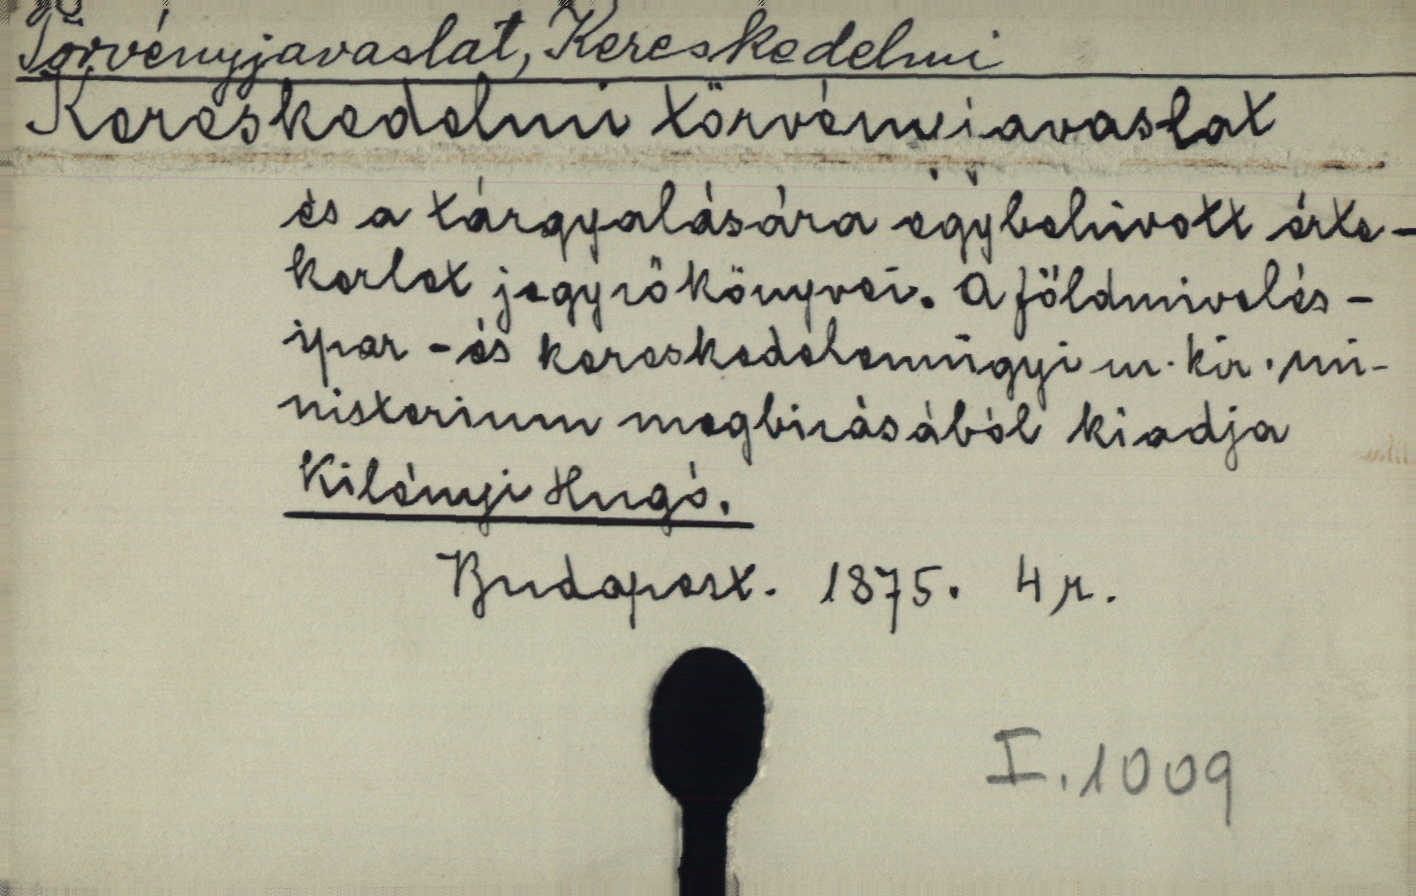 Törvényjavaslat, Kereskedelmi
Kereskedelmi törvényjavaslat
és a tárgyalására egybehivott érte-
kezlet jegyzökönyvei. A földmivelés-
ipar-és kereskedelemügyi m. kir. mi-
nisterium megbizásából kiadja
Kilényi Hugó.
Budapest. 1875. 4r.
I. 1009